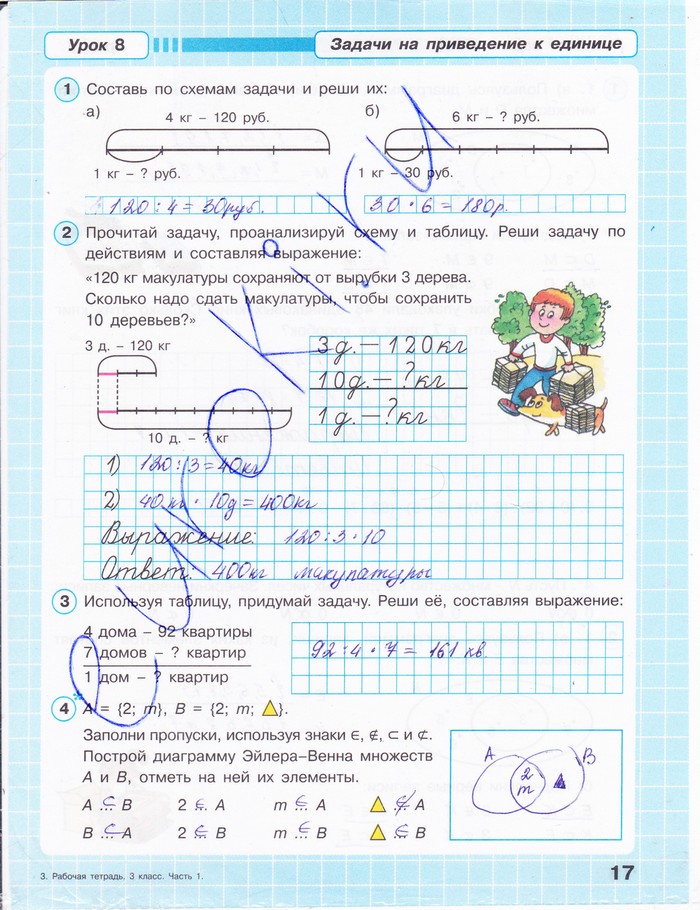 Урок 8
Задачи на приведение к единице
1 Составь по схемам задачи и реши их:
а) 4 кг – 120 руб. б) 6 кг – ? руб.
1 кг – ? руб. 1 кг – 30 руб.
120 : 4 = 30 руб. 30 · 6 = 180 р.
2 Прочитай задачу, проанализируй схему и таблицу. Реши задачу по
действиям и составляя выражение:
«120 кг макулатуры сохраняют от вырубки 3 дерева.
Сколько надо сдать макулатуры, чтобы сохранить
10 деревьев?»
3 д. – 120 кг
10 д. – ? кг
3 д. – 120 кг
10 д. – ? кг
1 д. – ? кг
1) 120 : 3 = 40 кг
2) 40 кг · 10 д = 400 кг
Выражение: 120 : 3 · 10
Ответ: 400 кг макулатуры
3 Используя таблицу, придумай задачу. Реши её, составляя выражение:
4 дома – 92 квартиры
7 домов – ? квартир
1 дом – ? квартир
92 : 4 · 7 = 161 кв.
4* A = {2; m}, B = {2; m; ▲}.
Заполни пропуски, используя знаки ∈, ∉, ⊂ и ⊄.
Построй диаграмму Эйлера–Венна множеств
A и B, отметь на ней их элементы.
A B
2
m
A ⊂ B 2 ∈ A m ∈ A ▲ ∉ A
B ⊂ A 2 ∈ B m ∈ B ▲ ∈ B
3. Рабочая тетрадь, 3 класс. Часть 1.
17